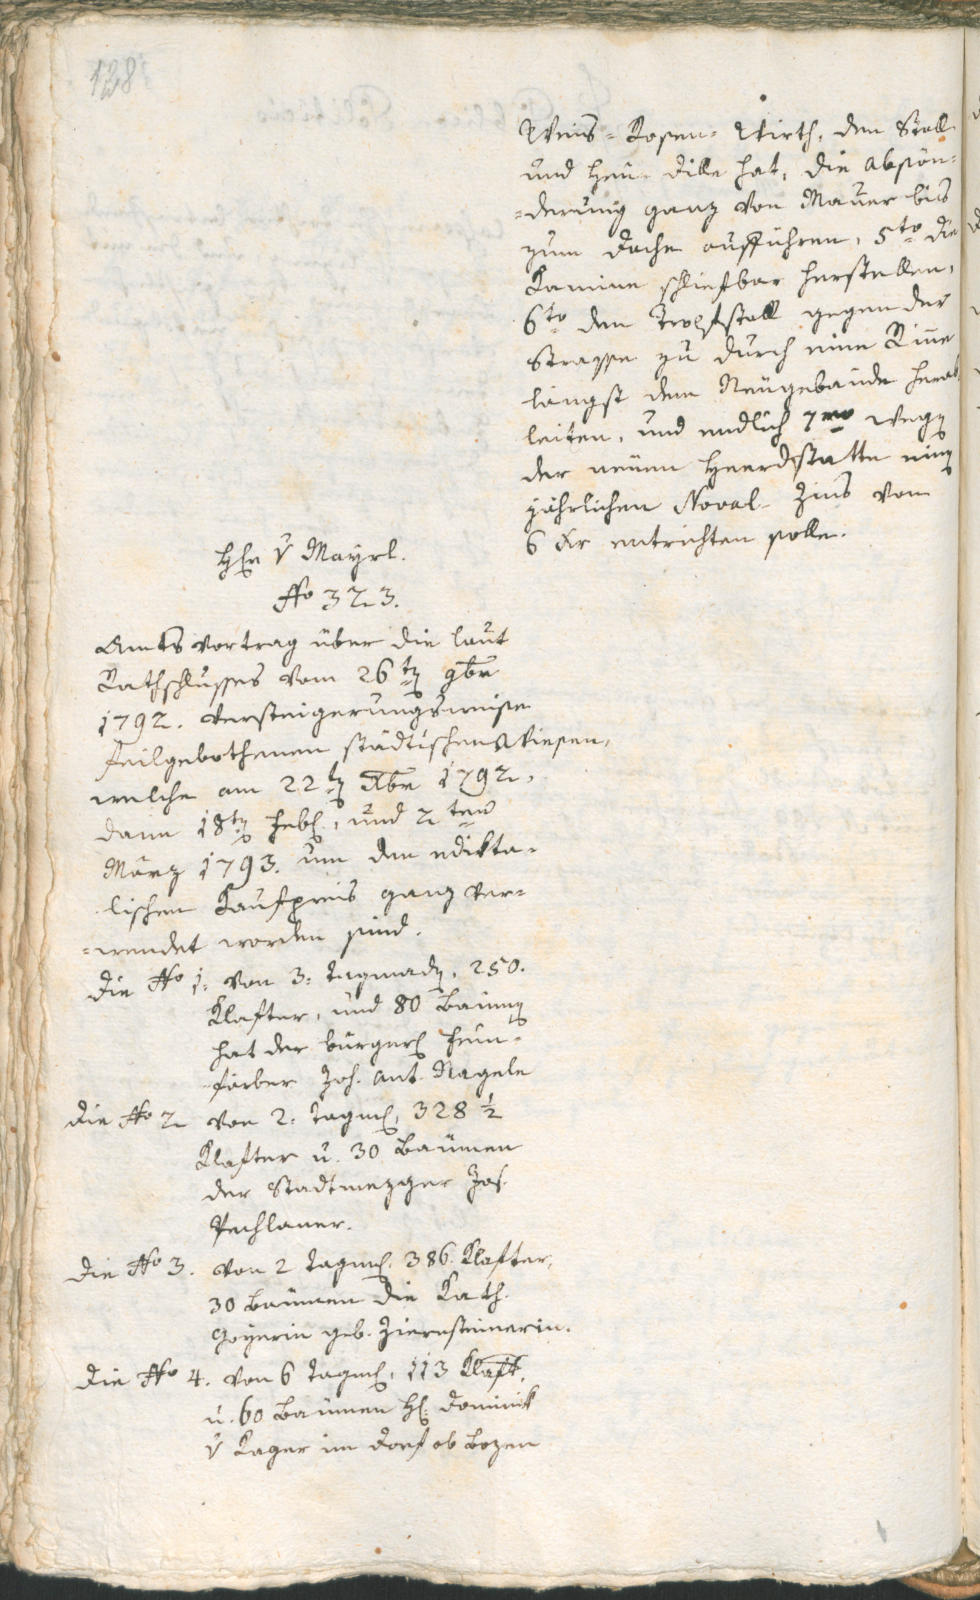 128
Weis-Rosen-Wirth, den Stall
und Heu-Dille hat, die Absön-
-derung ganz von Mauer bis
zum Dache aufführen, 5to die
Kamine schliefbar herstellen,
6to den Tropfstall gegen der
Strasse zu durch eine Rinne
längst dem Neugebäude herab
leiten, und endlich 7mo wegen
der neuen Heerdstatte einen
jährlichen Noval-Zins von
6 Kr entrichten solle.
Hr v Mayrl.
No 323.
Amtsvortrag über die laut
Rathschlusses vom 26ten 9br
1792. versteigerungsweise
feilgebothenen städtischen Wiesen,
welche am 22ten Xbr 1792,
dann 18ten Feb, und 2ten
März 1793. um den edikta-
lischen Kaufpreis ganz ver-
-wendet worden sind.
Die No 1. von 3. Tagmad, 250.
Klafter, und 80 Bäumen
hat der bürgerl
färber Joh. Ant. Nagele
Die No 2 von 2. Tagm, 328 1/2
Klafter u. 30 Bäumen
der Stadtmezger Jos.
Pechlaner.
Die No 3. von 2 Tagm. 386. Klafter,
30 Bäumen die Kath.
Goyerin geb. Ziernsteinerin.
Die No 4. von 6 Tagm, 113 Klaft.
u. 60 Bäumen H. Dominik
v Kager im Dorf ob Bozen